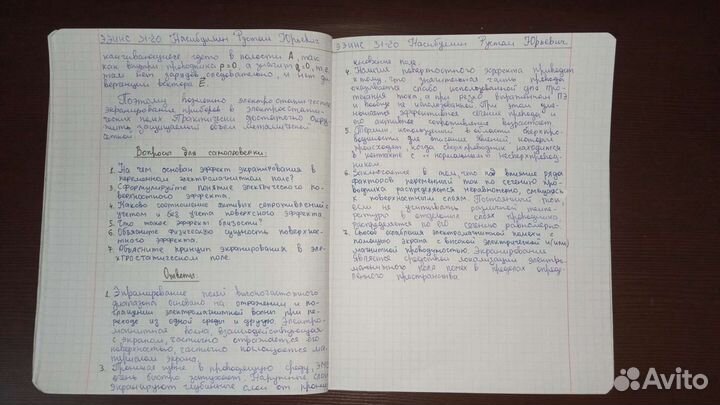 ЭЭИНС 31-20 Насибулин Рустам Юрьевич
канчивающего где-то в полости А, так
как внутри проводника ρ=0, а значит q=0, т.е.
там нет зарядов, следовательно, и нет
вектора E.
Поэтому возможно электростатическое
экранирование приборов в электростатичес-
ких полях. Практически достаточно окру-
жить защищаемый объем металлической
сеткой.
Вопросы для самопроверки:
1. На чем основан эффект экранирования в
переменном электромагнитном поле?
3. Сформулируйте понятие электрического по-
верхностного эффекта.
4. Каково соотношение активных сопротивлений с
учетом и без учета поверхностного эффекта.
5. Что такое эффект близости?
6. Объясните физическую сущность поверхнос-
тного эффекта.
7. Объясните принцип экранирования в эле-
ктростатическом поле.
Ответы:
1. Экранирование полей высокочастотного
диапазона основано на отражении и по-
глощении электромагнитной волны при пе-
реходе из одной среды в другую. Электро-
магнитная волна, взаимодействующая
с экраном, частично отражается его
поверхностью, частично поглощается ма-
териалом экрана.
3. Проникая извне в проводящую среду, ЭМВ
очень быстро затухает. Наружные слои
экранируют глубинные слои от
ЭЭИНС 31-20 Насибулин Рустам Юрьевич
поля.
4. Наличие поверхностного эффекта приводит
к тому, что значительная часть провода
оказывается слабо использованной для про-
текания тока, а при резко выраженном ПЭ
и вообще не использованной. При этом уме-
ньшается эффективное сечение провода и
его активное сопротивление возрастает.
5. Термин, используемый в области сверхпро-
водимости для описания явлений, которые
происходят, когда сверхпроводник находится
в контакте с "нормальным" несверхпровод-
ником.
6. Заключается в том, что под влиянием ряда
факторов переменный ток по сечению про-
водника распределяется неравномерно, смещаясь
к поверхностным слоям. Постоянный ток,
если не учитывать различий темпе-
ратуры в отдельных слоях проводника
распределяется по его сечению равномерно.
7. Способ ослабления электромагнитной помехи с
помощью экрана с высокой электрической и(или)
магнитной проводимостью. Экранирование
является средством локализации электро-
магнитного поля помех в пределах опреде-
лённого пространства.
Avito